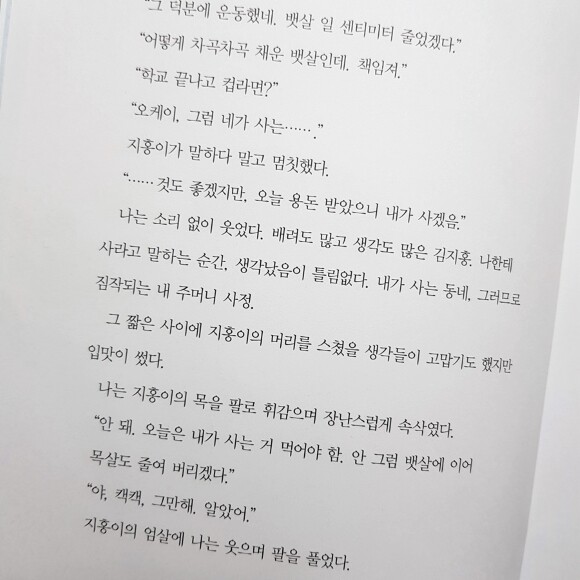 “그 덕분에 운동했네. 뱃살 일 센티미터 줄었겠다.”
“어떻게 차곡차곡 채운 뱃살인데. 책임져.”
“학교 끝나고 컵라면?”
“오케이, 그럼 네가 사는…….”
지홍이가 말하다 말고 멈칫했다.
“……것도 좋겠지만, 오늘 용돈 받았으니 내가 사겠음.”
나는 소리 없이 웃었다. 배려도 많고 생각도 많은 김지홍. 나한테
사라고 말하는 순간, 생각났음이 틀림없다. 내가 사는 동네, 그러므로
짐작되는 내 주머니 사정.
그 짧은 사이에 지홍이의 머리를 스쳤을 생각들이 고맙기도 했지만
입맛이 썼다.
나는 지홍이의 목을 팔로 휘감으며 장난스럽게 속삭였다.
“안 돼. 오늘은 내가 사는 거 먹어야 함. 안 그럼 뱃살에 이어
목살도 줄여 버리겠다.”
“야, 캑캑, 그만해. 알았어.”
지홍이의 엄살에 나는 웃으며 팔을 풀었다.